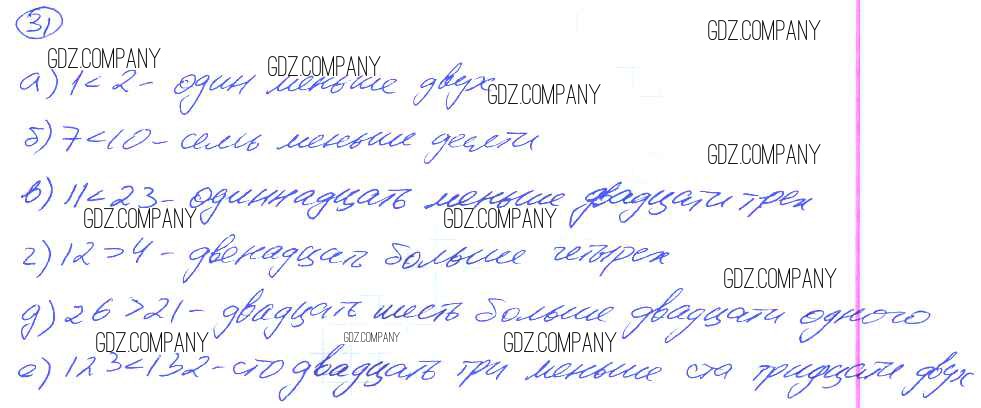 31
GDZ.COMPANY
GDZ.COMPANY GDZ.COMPANY
а) 1 < 2 - один меньше двух
GDZ.COMPANY
б) 7 < 10 - семь меньше десяти
GDZ.COMPANY
в) 11 < 23 - одиннадцать меньше двадцати трех
GDZ.COMPANY GDZ.COMPANY
г) 12 > 4 - двенадцать больше четырех
GDZ.COMPANY
д) 26 > 21 - двадцать шесть больше двадцати одного
GDZ.COMPANY GDZ.COMPANY GDZ.COMPANY
е) 123 < 132 - сто двадцать три меньше ста тридцати двух